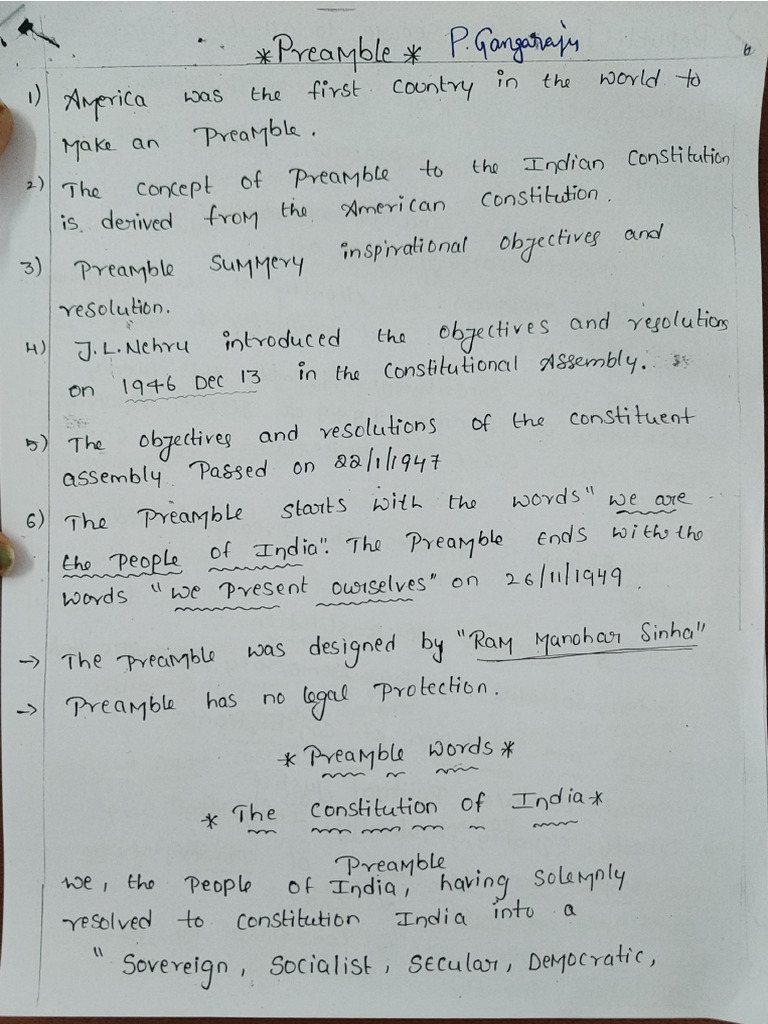 *Preamble* P. Gangaraju
6
1) America was the first country in the world to
make an Preamble.
2) The concept of Preamble to the Indian constitution
is derived from the American constitution.
3) Preamble summery inspirational objectives and
resolution.
4) J.L. Nehru introduced the objectives and resolutions
on 1946 Dec 13 in the constitutional Assembly.
5) The objectives and resolutions of the constituent
assembly Passed on 22/1/1947
6) The Preamble starts with the words "we are
the people of India". The Preamble Ends with the
words "we present ourselves" on 26/11/1949.
→ The preamble was designed by "Ram Manohar Sinha"
→ Preamble has no legal protection.
*Preamble words*
*The constitution of India*
Preamble
we, the people of India, having solemnly
resolved to constitution India into a
"Sovereign, Socialist, Secular, Democratic,